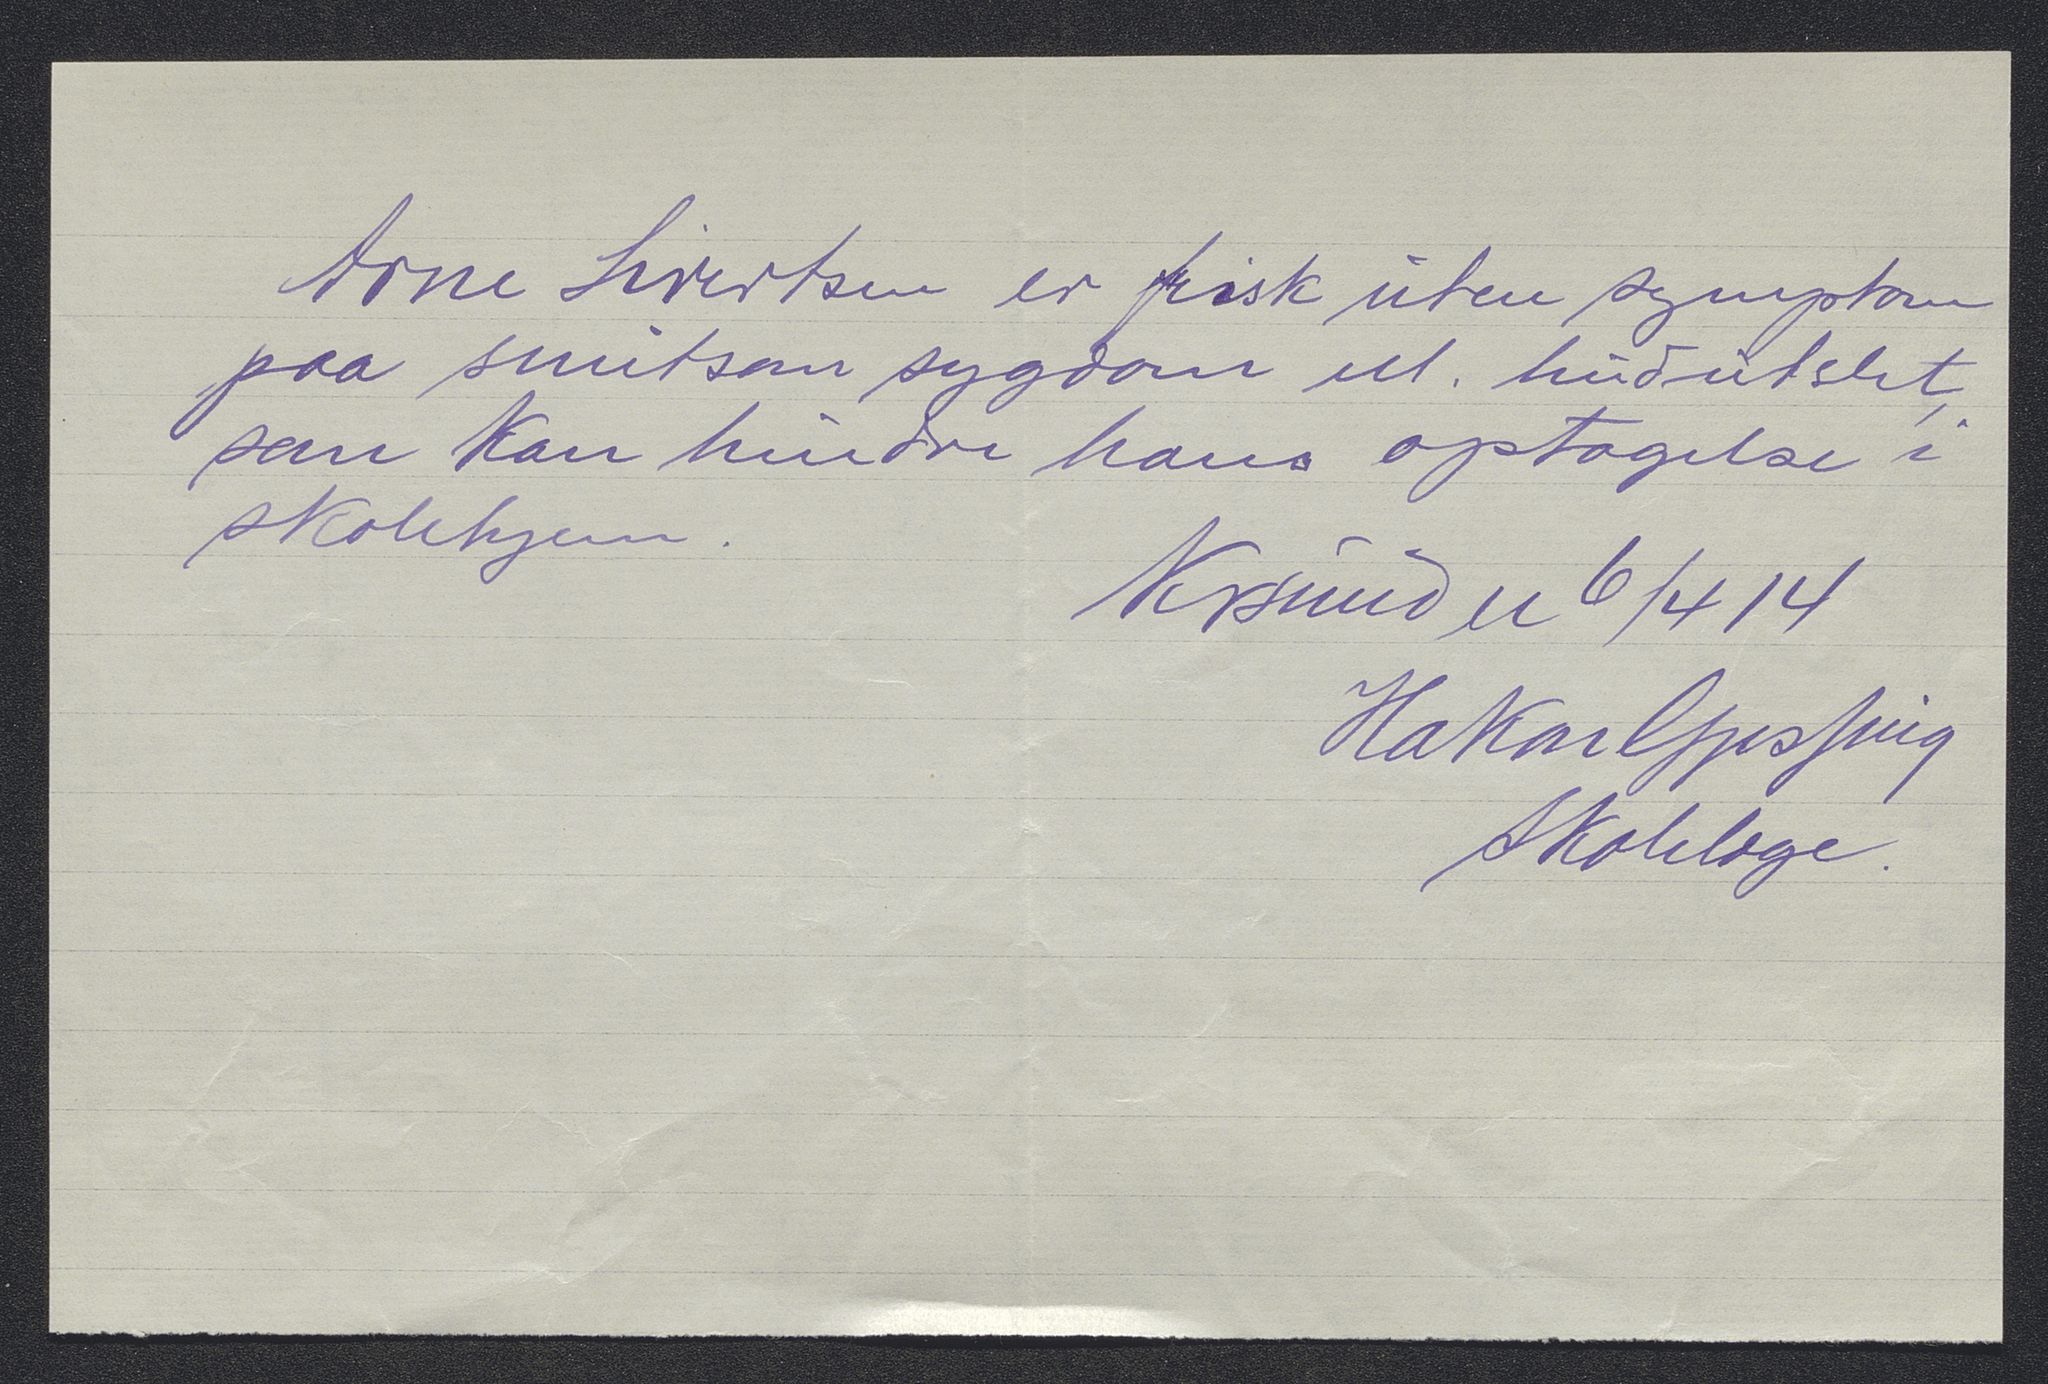 Arne Sivertsen er frisk uten symptom
paa smitsom sygdom el. hudutslet,
som kan hindre hans optagelse i
skolehjem.
Krsund N 6/4 14
Hakon
Skolelæge.